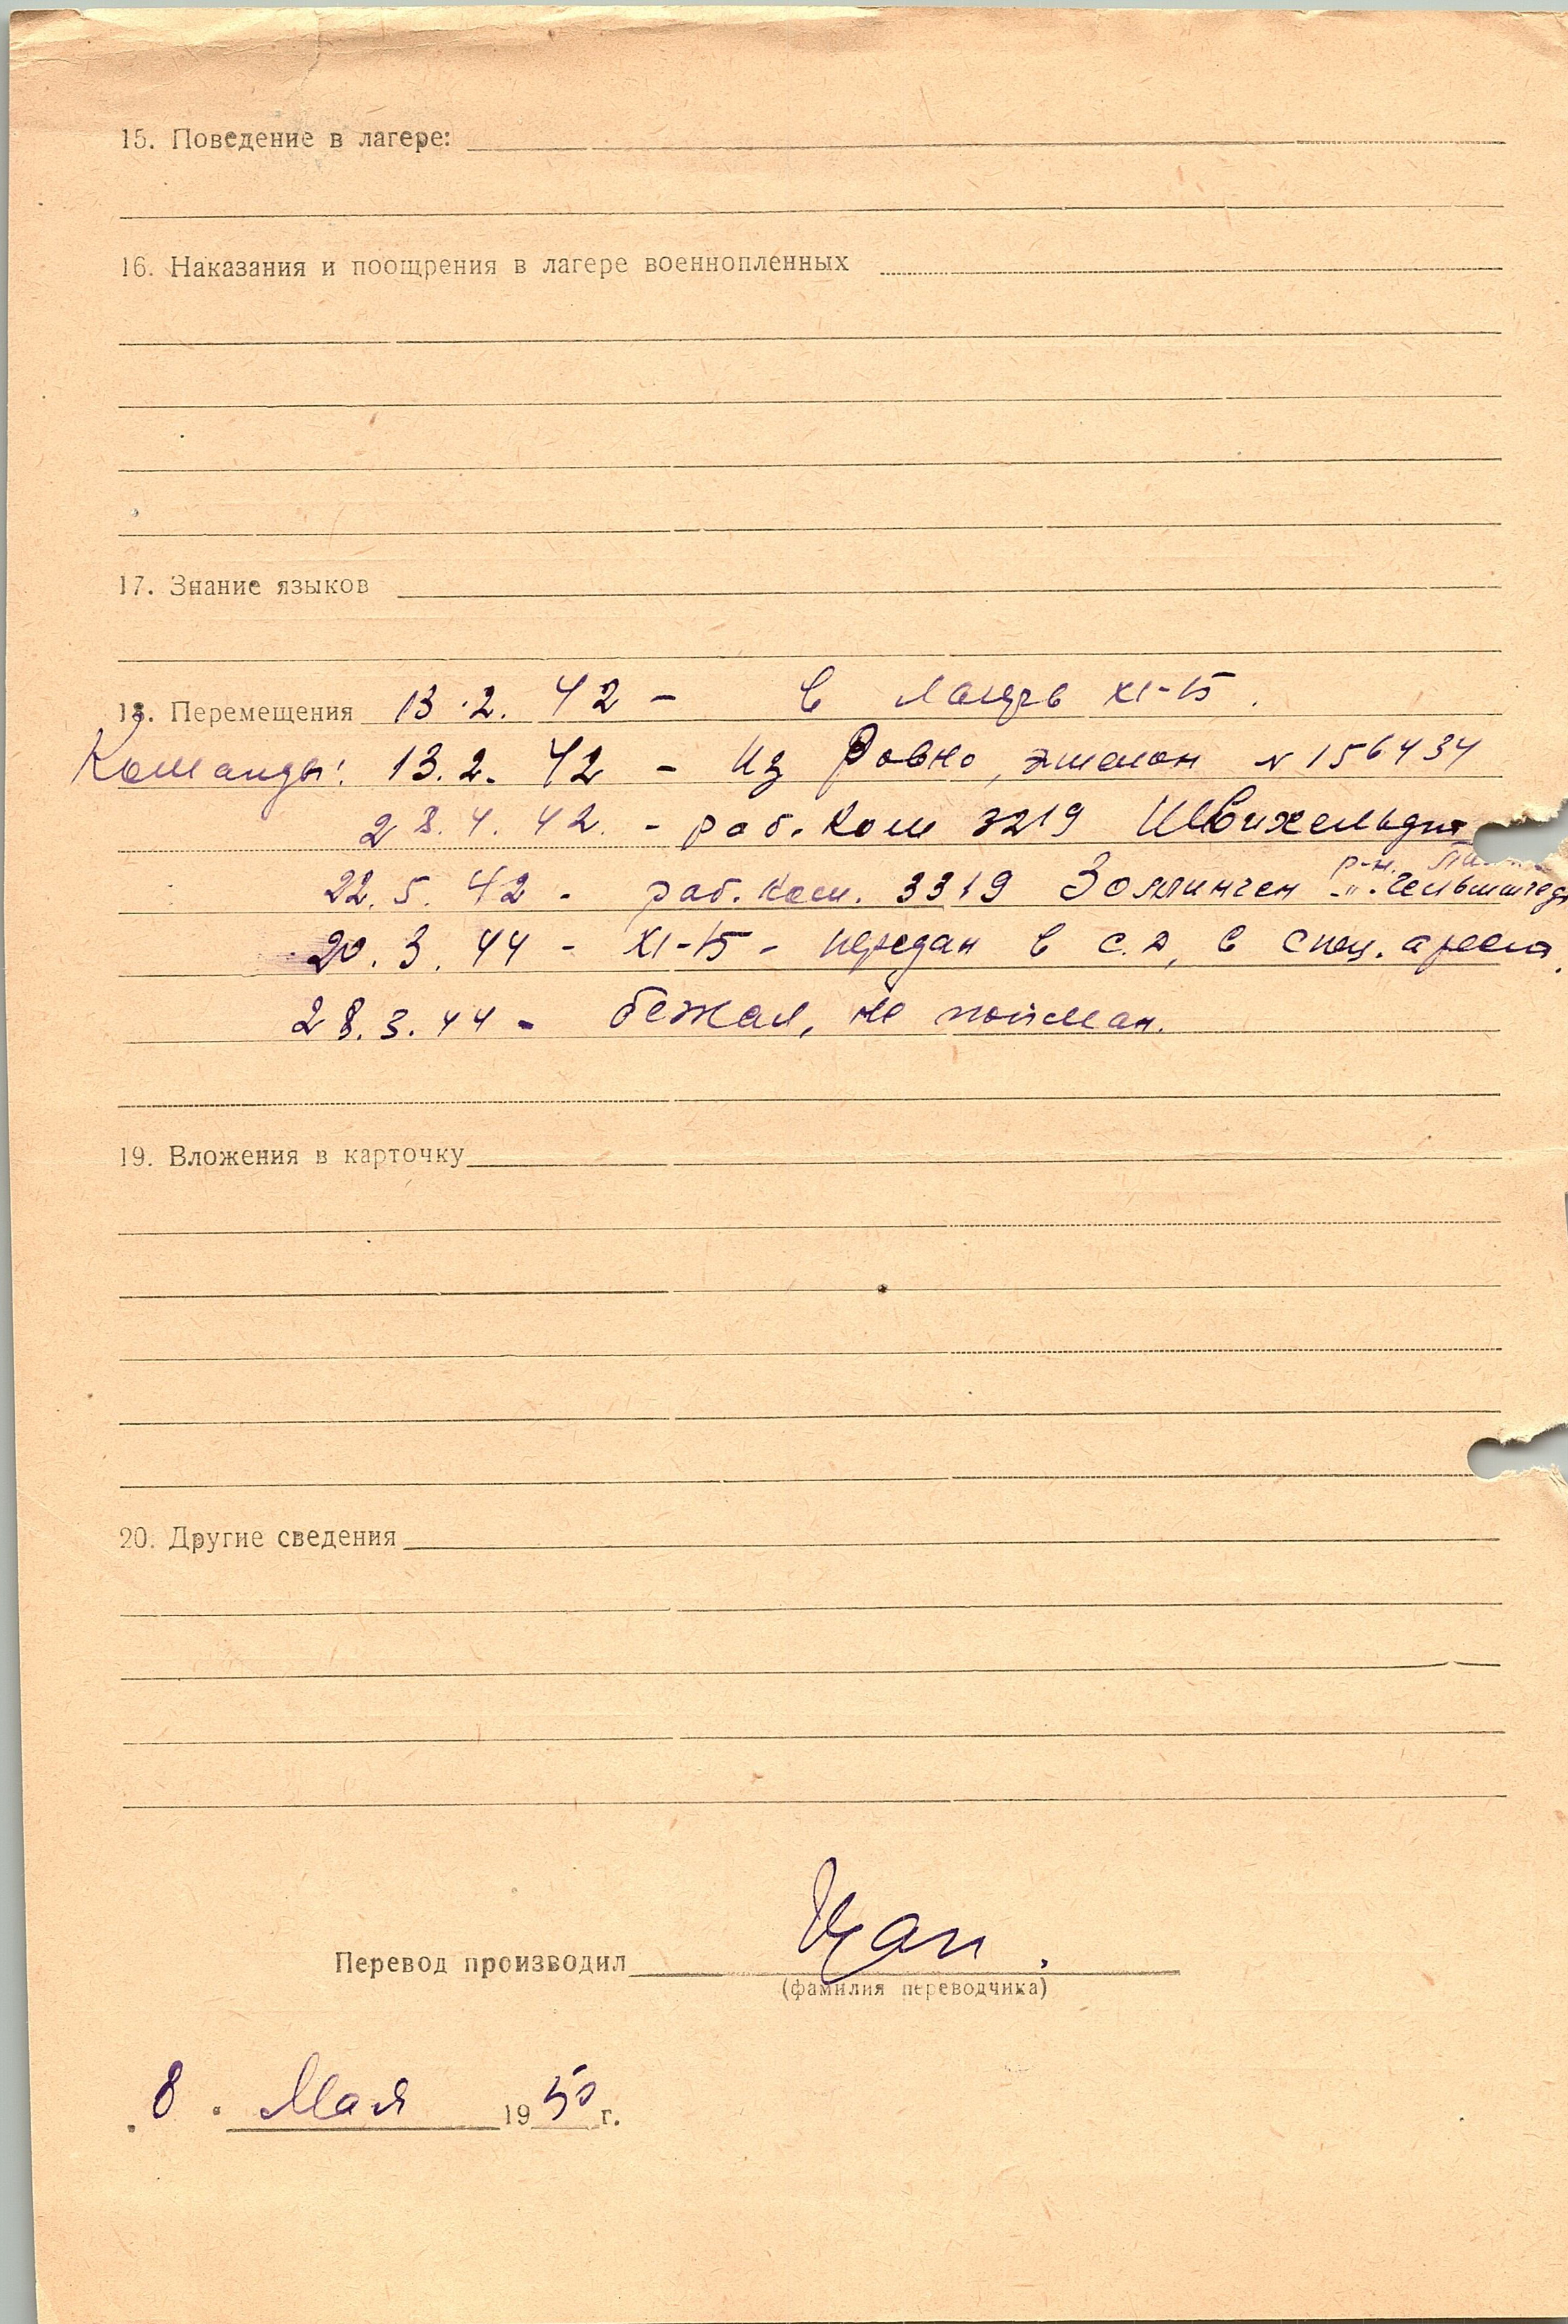 15. Поведение в лагере:
16. Наказания и поощрения в лагере военнопленных
17. Знание языков
18. Перемещения 13.2.42 - в лагерь XI-15.
Команды: 13.2.42 - из Ровно, эшелон N 156434
28.4.42. - раб. ком 3219
р-н.
22.5.42 - раб. ком. 3319 Золлинген -"-
20.3.44 - XI-15 - передан в С.Д, в спец.
28.3.44 - бежал, не пойман.
19. Вложения в карточку
20. Другие сведения
Перевод производил
(фамилия переводчика)
„8“ Мая 1950 г.